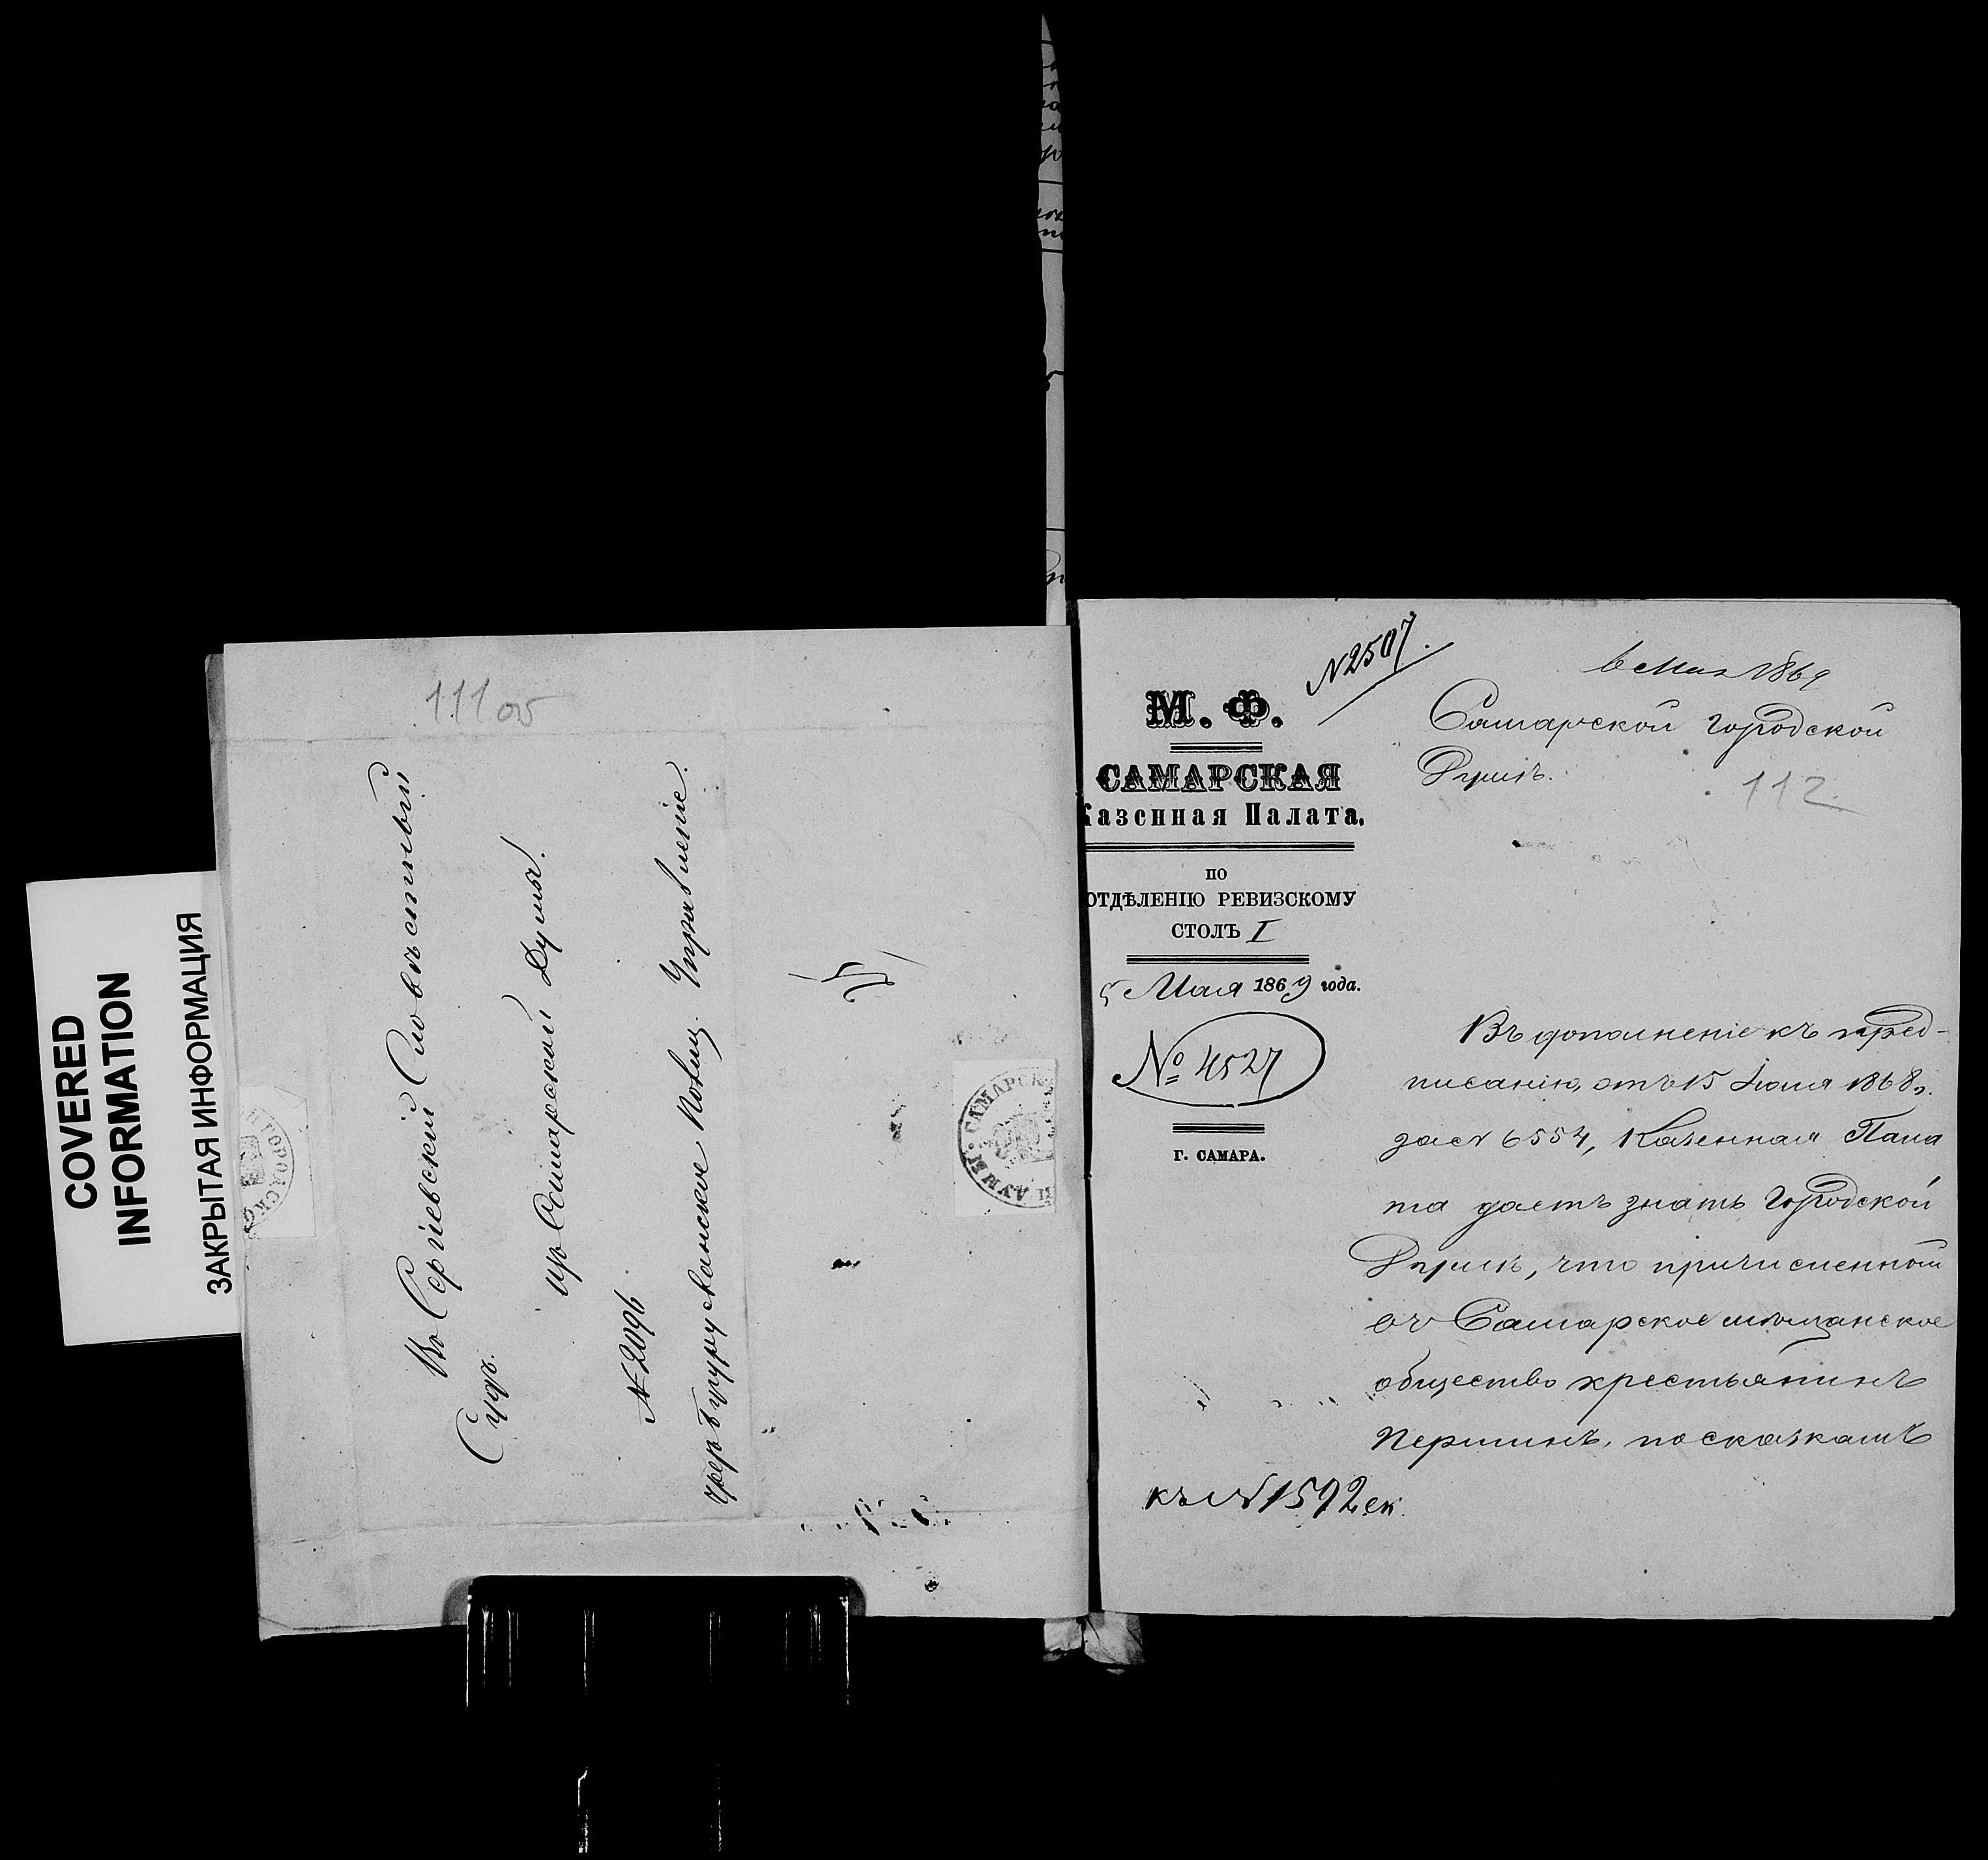 COVERED
INFORMATION
ЗАКРЫТАЯ ИНФОРМАЦИЯ
111 об
Въ Сергіевскій Словѣстный
Судъ.
изъ Самарской Думы.
№ 2096
чрезъ Бугурусланское Полиц. Управленіе.
САМАРСК
ДУМЫ
ГОРОДСК
№ 2507.
М. Ф.
САМАРСКАЯ
Казенная Палата.
ПО
ОТДѢЛЕНІЮ РЕВИЗСКОМУ
СТОЛЪ I
5 Мая 1869 года.
№ 4527
Г. САМАРА.
къ № 1592 ек.
6 Мая 1869
Самарской Городской
Думѣ.
112
Въ дополненіе къ пред-
писанію, отъ 15 Іюля 1868 г.
за № 6554, Казенная Пала
та даетъ знать Городской
Думѣ, что причисленной
въ Самарское мѣщанское
общество крестьянинъ
Першинъ, по сказкамъ